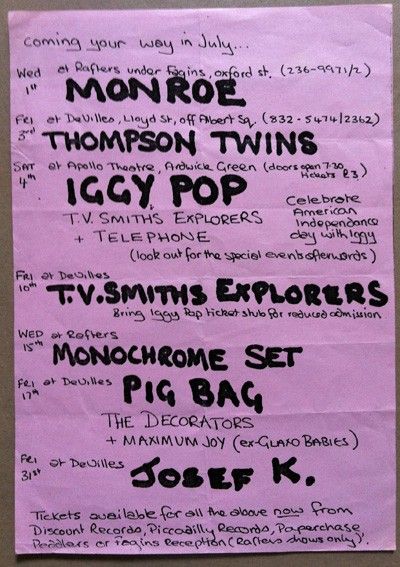 coming your way in July...
Wed 1st at Rafters under Fagins, oxford st. (236-9971/2)
MONROE
Fri 3rd at DeVilles, Lloyd St, off Albert Sq. (832-5474/2362)
THOMPSON TWINS
SAT 4th at Apollo Theatre, Ardwick Green (doors open 7.30, tickets £3)
IGGY POP
T.V. SMITHS EXPLORERS
+ TELEPHONE
Celebrate
American
Independance
day with Iggy
(look out for the special events afterwards)
FRI 10th at DeVilles
T.V. SMITHS EXPLORERS
Bring Iggy Pop ticket stub for reduced admission
WED 15th at Rafters
MONOCHROME SET
FRI 17th at DeVilles
PIG BAG
THE DECORATORS
+ MAXIMUM JOY (ex-GLAXO BABIES)
FRI 31st at DeVilles
JOSEF K.
Tickets available for all the above now from
Discount Records, Piccadilly Records, Paperchase
Peddlers or Fagins Reception (Rafters shows only).